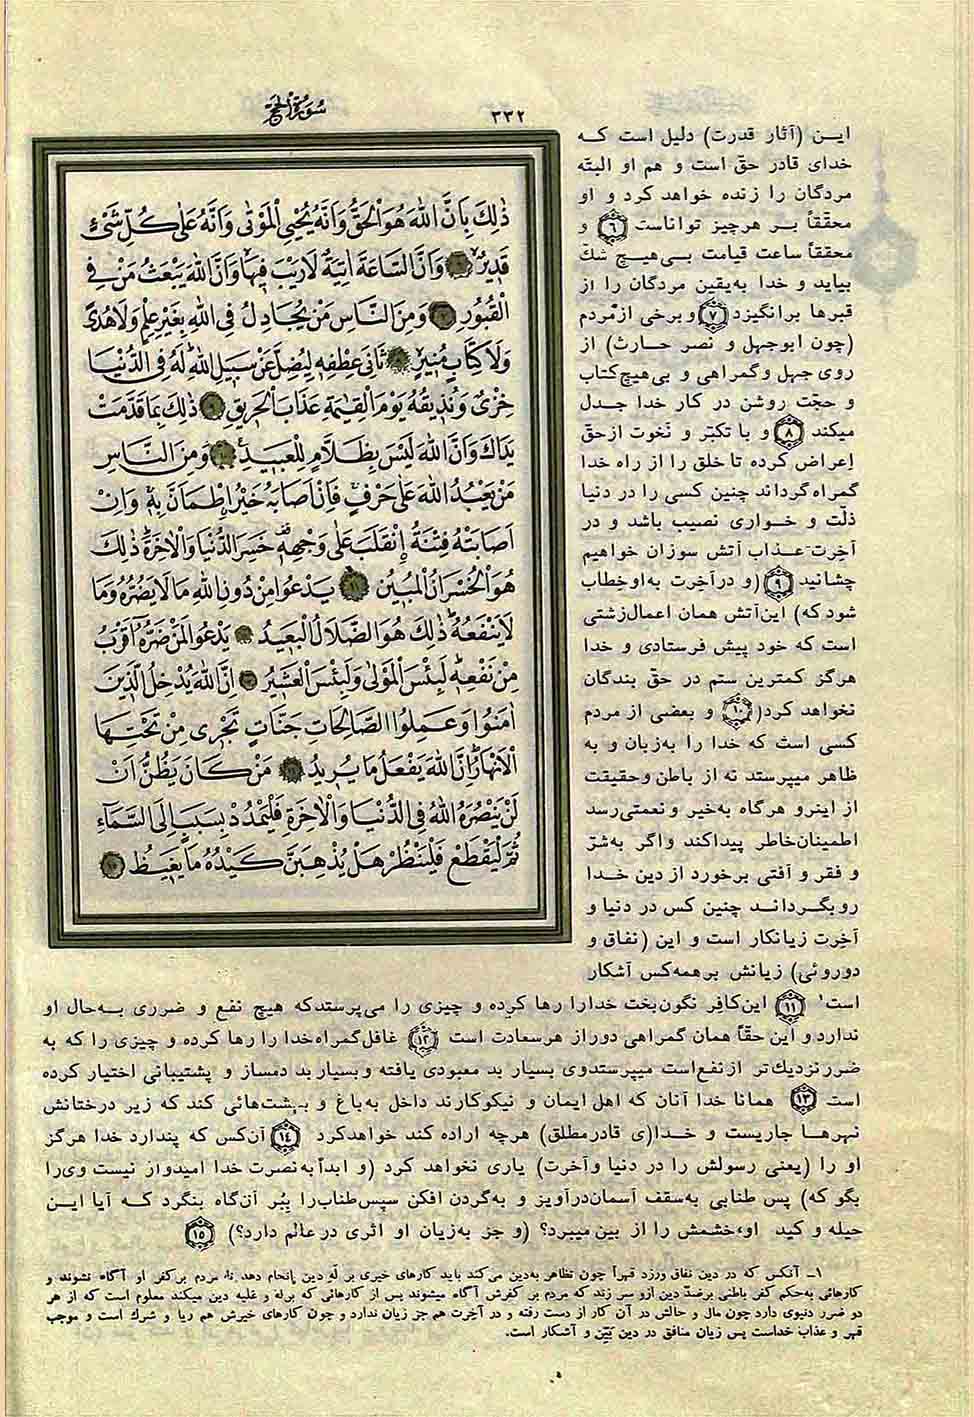 سورة الحج
۳۳۲
ذٰلِكَ بِاَنَّ اللهَ هُوَ الْحَقُّ وَاَنَّهُ يُحْيِي الْمَوْتٰى وَاَنَّهُ عَلٰى كُلِّ شَيْءٍ
قَدِيرٌ ۶ وَاَنَّ السَّاعَةَ اٰتِيَةٌ لَارَيْبَ فِيهَا وَاَنَّ اللهَ يَبْعَثُ مَنْ فِي
الْقُبُورِ ۷ وَمِنَ النَّاسِ مَنْ يُجَادِلُ فِي اللهِ بِغَيْرِ عِلْمٍ وَلَا هُدًى
وَلَا كِتَابٍ مُنِيرٍ ۸ ثَانِيَ عِطْفِهِ لِيُضِلَّ عَنْ سَبِيلِ اللهِ لَهُ فِي الدُّنْيَا
خِزْيٌ وَنُذِيقُهُ يَوْمَ الْقِيٰمَةِ عَذَابَ الْحَرِيقِ ۹ ذٰلِكَ بِمَا قَدَّمَتْ
يَدَاكَ وَاَنَّ اللهَ لَيْسَ بِظَلَّامٍ لِلْعَبِيدِ ۱۰ وَمِنَ النَّاسِ
مَنْ يَعْبُدُ اللهَ عَلٰى حَرْفٍ فَاِنْ اَصَابَهُ خَيْرٌ اِطْمَاَنَّ بِهِ وَاِنْ
اَصَابَتْهُ فِتْنَةٌ اِنْقَلَبَ عَلٰى وَجْهِهِ خَسِرَ الدُّنْيَا وَالْاٰخِرَةَ ذٰلِكَ
هُوَ الْخُسْرَانُ الْمُبِينُ ۱۱ يَدْعُوا مِنْ دُونِ اللهِ مَا لَا يَضُرُّهُ وَمَا
لَا يَنْفَعُهُ ذٰلِكَ هُوَ الضَّلَالُ الْبَعِيدُ ۱۲ يَدْعُو لَمَنْ ضَرُّهُ اَقْرَبُ
مِنْ نَفْعِهِ لَبِئْسَ الْمَوْلٰى وَلَبِئْسَ الْعَشِيرُ ۱۳ اِنَّ اللهَ يُدْخِلُ الَّذِينَ
اٰمَنُوا وَعَمِلُوا الصَّالِحَاتِ جَنَّاتٍ تَجْرِي مِنْ تَحْتِهَا
الْاَنْهَارُ اِنَّ اللهَ يَفْعَلُ مَا يُرِيدُ ۱۴ مَنْ كَانَ يَظُنُّ اَنْ
لَنْ يَنْصُرَهُ اللهُ فِي الدُّنْيَا وَالْاٰخِرَةِ فَلْيَمْدُدْ بِسَبَبٍ اِلَى السَّمَاءِ
ثُمَّ لْيَقْطَعْ فَلْيَنْظُرْ هَلْ يُذْهِبَنَّ كَيْدُهُ مَا يَغِيظُ ۱۵
این (آثار قدرت) دلیل است که
خدای قادر حقّ است و هم او البته
مردگان را زنده خواهد کرد و او
محقّقاً بر هرچیز تواناست ۶ و
محققاً ساعت قیامت بی‌هیچ شک
بیاید و خدا به‌یقین مردگان را از
قبرها برانگیزد ۷ و برخی از مردم
(چون ابوجهل و نصر حارث) از
روی جهل و گمراهی و بی‌هیچ کتاب
و حجّت روشن در کار خدا جدل
میکند ۸ و با تکبّر و نخوت از حقّ
اِعراض کرده تا خلق را از راه خدا
گمراه گرداند چنین کسی را در دنیا
ذلّت و خواری نصیب باشد و در
آخرت عذاب آتش سوزان خواهیم
چشانید ۹ (و در آخرت به او خطاب
شود که) این آتش همان اعمال زشتی
است که خود پیش فرستادی و خدا
هرگز کمترین ستم در حق بندگان
نخواهد کرد ۱۰ و بعضی از مردم
کسی است که خدا را به‌زبان و به
ظاهر میپرستد نه از باطن و حقیقت
از اینرو هرگاه به‌خیر و نعمتی رسد
اطمینان خاطر پیدا کند و اگر به‌شرّ
و فقر و آفتی برخورد از دین خدا
رو بگرداند چنین کس در دنیا و
آخرت زیانکار است و این (نفاق و
دوروئی) زیانش بر همه‌کس آشکار
است۱ ۱۱ این کافر نگون‌بخت خدا را رها کرده و چیزی را می‌پرستد که هیچ نفع و ضرری به‌حال او
ندارد و این حقّاً همان گمراهی دور از هر سعادت است ۱۲ غافل گمراه خدا را رها کرده و چیزی را که به
ضرر نزدیک‌تر از نفع است میپرستد وی بسیار بد معبودی یافته و بسیار بد دمساز و پشتیبانی اختیار کرده
است ۱۳ همانا خدا آنان که اهل ایمان و نیکوکارند داخل به‌باغ و بهشت‌هائی کند که زیر درختانش
نهرها جاریست و خدا(ی قادر مطلق) هرچه اراده کند خواهد کرد ۱۴ آن‌کس که پندارد خدا هرگز
او را (یعنی رسولش را در دنیا و آخرت) یاری نخواهد کرد (و ابداً به‌نصرت خدا امیدوار نیست وی را
بگو که) پس طنابی به‌سقف آسمان درآویز و به‌گردن افکن سپس طناب را ببُر آن‌گاه بنگرد که آیا این
حیله و کید او، خشمش را از بین میبرد؟ (و جز به‌زیان او اثری در عالم دارد؟) ۱۵
۱ـ آنکس که در دین نفاق ورزد قهراً چون تظاهر به‌دین می‌کند باید کارهای خیری بر لَهِ دین انجام دهد تا مردم بر کفر او آگاه نشوند و
کارهائی به‌حکم کفر باطنی برضدّ دین از او سر زند که مردم بر کفرش آگاه میشوند پس از کارهائی که برله و علیه دین میکند معلوم است که از هر
دو ضرر دنیوی دارد چون مال و حالش در آن کار از دست رفته و در آخرت هم جز زیان ندارد و چون کارهای خیرش هم ریا و شرک است و موجب
قهر و عذاب خداست پس زیان منافق در دین بَیّن و آشکار است.